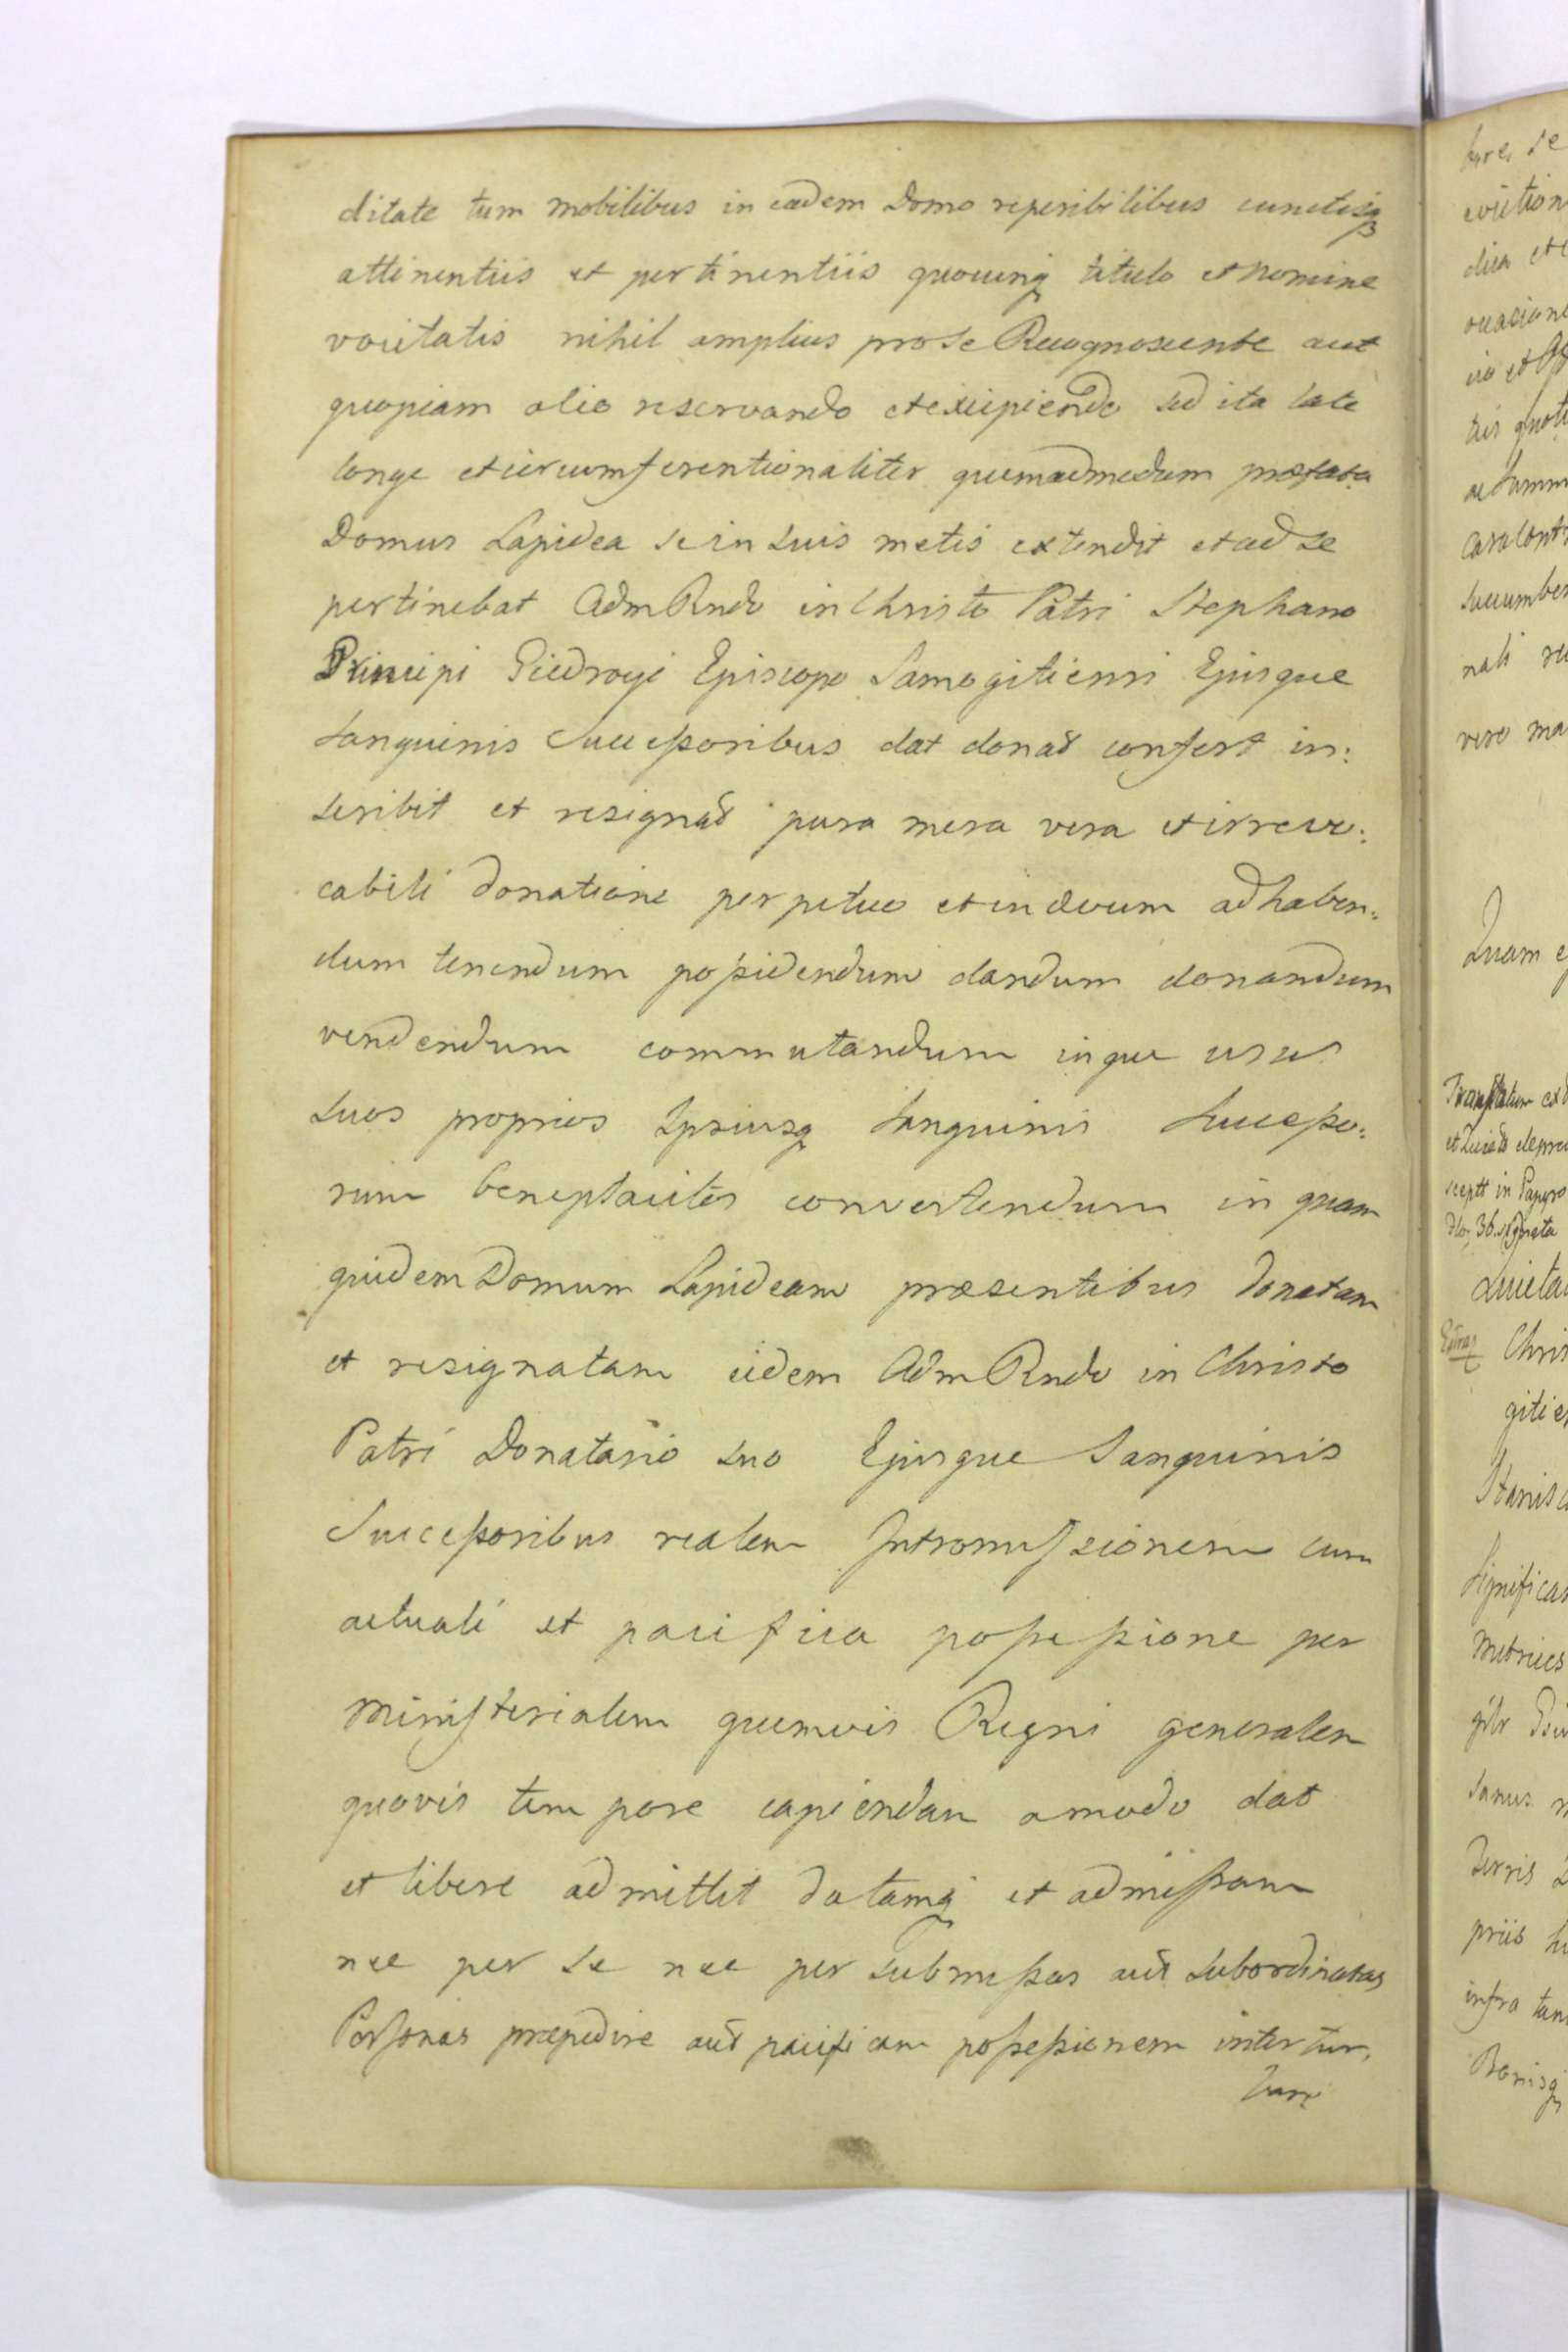 ditate tum mobilibus in eadem Domo reperibilibus cunctisq
attinentiis et pertinentiis quocunq titulo et nomine
vocitatis nihil amplius pro se Recognoscente aut
quopiam alio reservando et excipiendo sed ita late
longe et circumferentionaliter quemadmodum præfata
Domus Lapidea se in suis metis extendit et ad se
pertinebat Adm Rndo in Christo Patri Stephano
Principi Giedroyc Episcopo Samogitiensi Ejusque
Sanguinis Successoribus dat donat confert in:
scribit et resignat pura mera vera et irrevo:
cabili donatione perpetuo et in ævum ad haben:
dum tenendum possidendum dandum donandum
vendendum commutandum inque usus
suos proprios Ipsiusq Sanguinis Successo:
rum beneplacites convertendum in quam
quidem Domum Lapideam præsentibus donatam
et resignatam eidem Adm Rndo in Christo
Patri Donatario suo Ejusque Sanguinis
Successoribus realem Intromissionem cum
actuali et pacifica possessione per
Ministerialem quemvis Regni generalem
quovis tempore capiendam amodo dat
et libere admittit datamq et admissam
nec per se nec per submissas aut subordinatas
Personas præpedire aut pacificam possessionem intertur,
bare
bare, se
eviction
occasione
ac summ
succumben
nali
vero ma
Quam
Transl̃atum
in Papyro
36 signata
Quieta
Chris
gitien
Stanis
Significa
Metrices
sanus
Terris
priis
infra tam
Bonisq